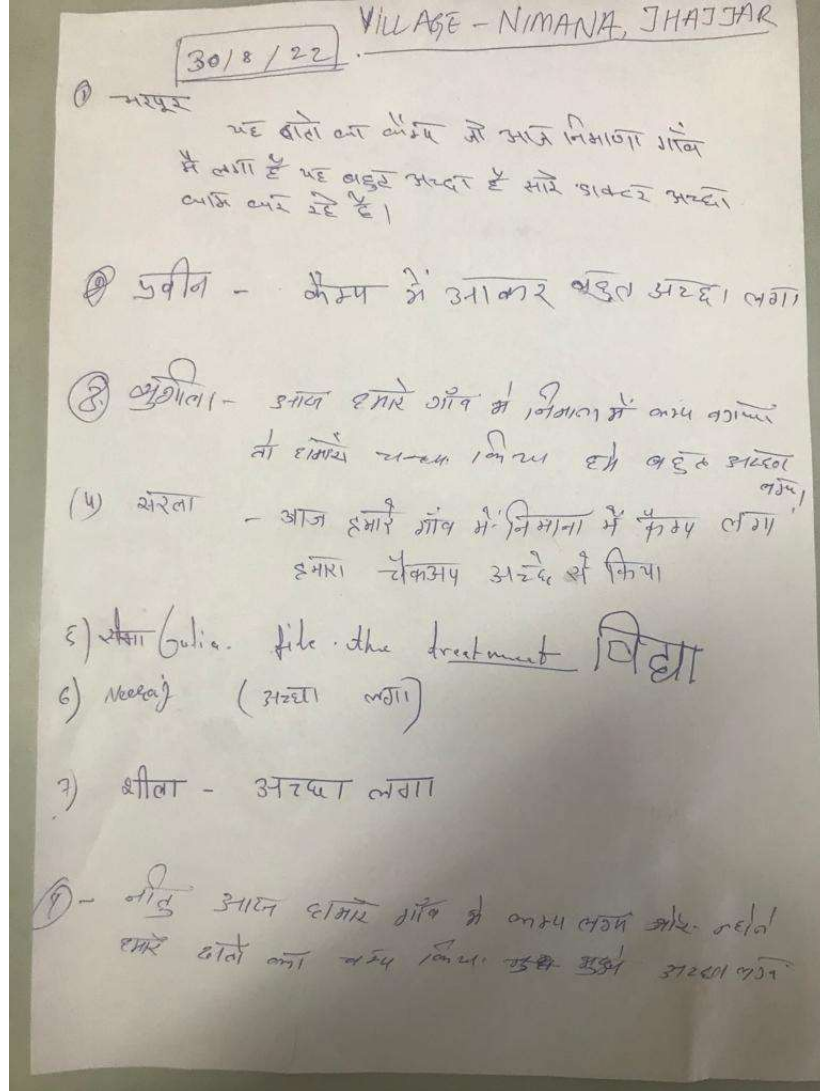 VILLAGE - NIMANA, JHAJJAR
30/8/22
① भरपूर
यह दातो का कैम्प जो आज निमाणा गाँव
मै लगा है यह बहुत अच्छा है सारे डाक्टर अच्छा
काम कर रहे है।
प्रवीन - कैम्प में आकर बहुत अच्छा लगा
सुशीला - आज हमारे गाँव मे निमाणा में कम्प
तो हामारे किया हमे बहुत अच्छा
लगा।
(4) सरला
- आज हमारे गाँव में निमाना में कैम्प लगा
हमारा चैकअप अच्छे से किया
5) Gulia. the treatment विद्या
6) Neeraj (अच्छा लगा)
7) शीला - अच्छा लगा
- नीतु आज हामारे गाँव मे कम्प लगा
हमारे दातो का किया मुझे अच्छा लगा